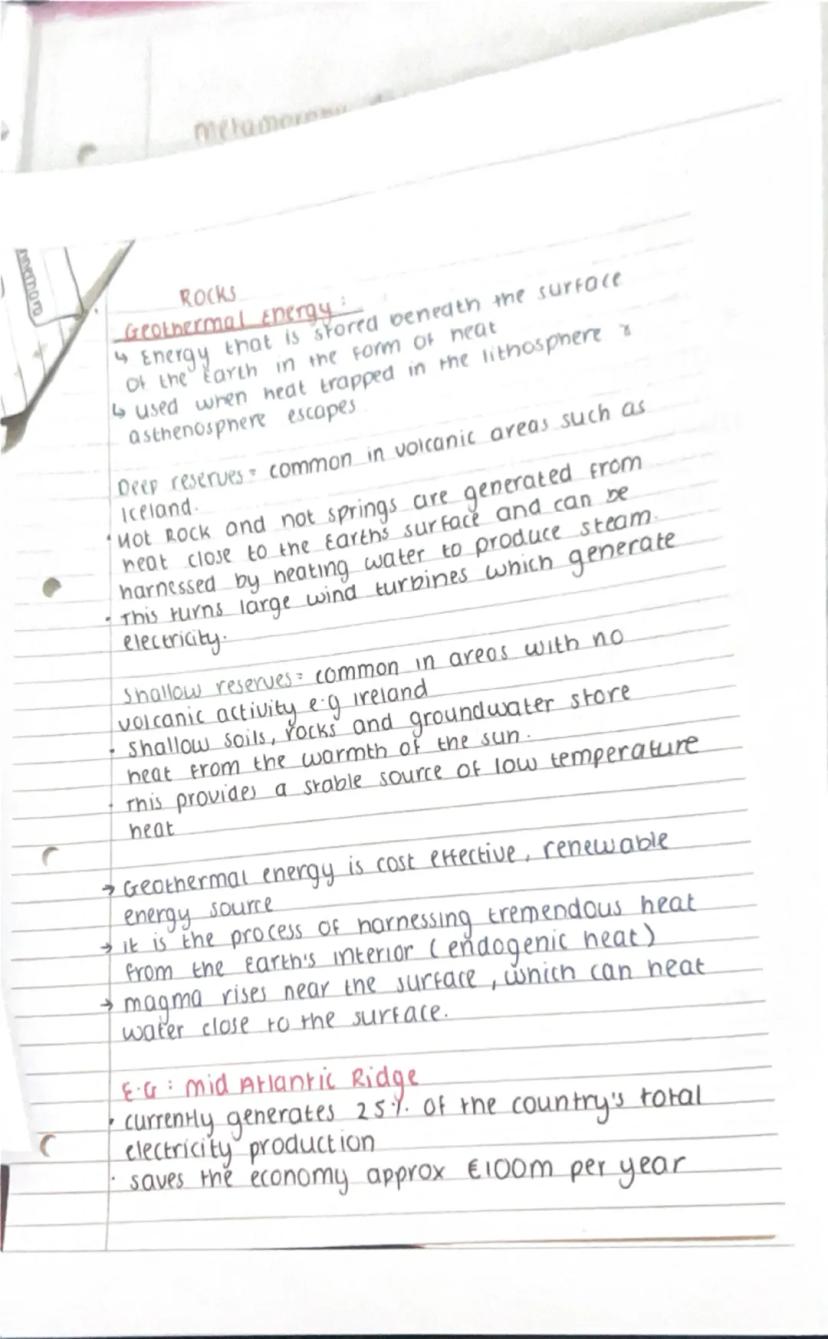 ROCKS
Geothermal Energy:
↳ Energy that is stored beneath the surface
of the Earth in the form of heat
↳ used when heat trapped in the lithosphere &
asthenosphere escapes
Deep reserves = common in volcanic areas such as
Iceland.
• Hot Rock and hot springs are generated from
heat close to the Earths surface and can be
harnessed by heating water to produce steam.
• This turns large wind turbines which generate
electricity.
Shallow reserves = common in areas with no
volcanic activity e.g Ireland
• Shallow soils, rocks and groundwater store
heat from the warmth of the sun.
• This provides a stable source of low temperature
heat
→ Geothermal energy is cost effective, renewable
energy source
→ it is the process of harnessing tremendous heat
from the Earth's interior (endogenic heat)
→ magma rises near the surface, which can heat
water close to the surface.
E.G: mid Atlantic Ridge
• currently generates 25% of the country's total
electricity production
• saves the economy approx €100m per year